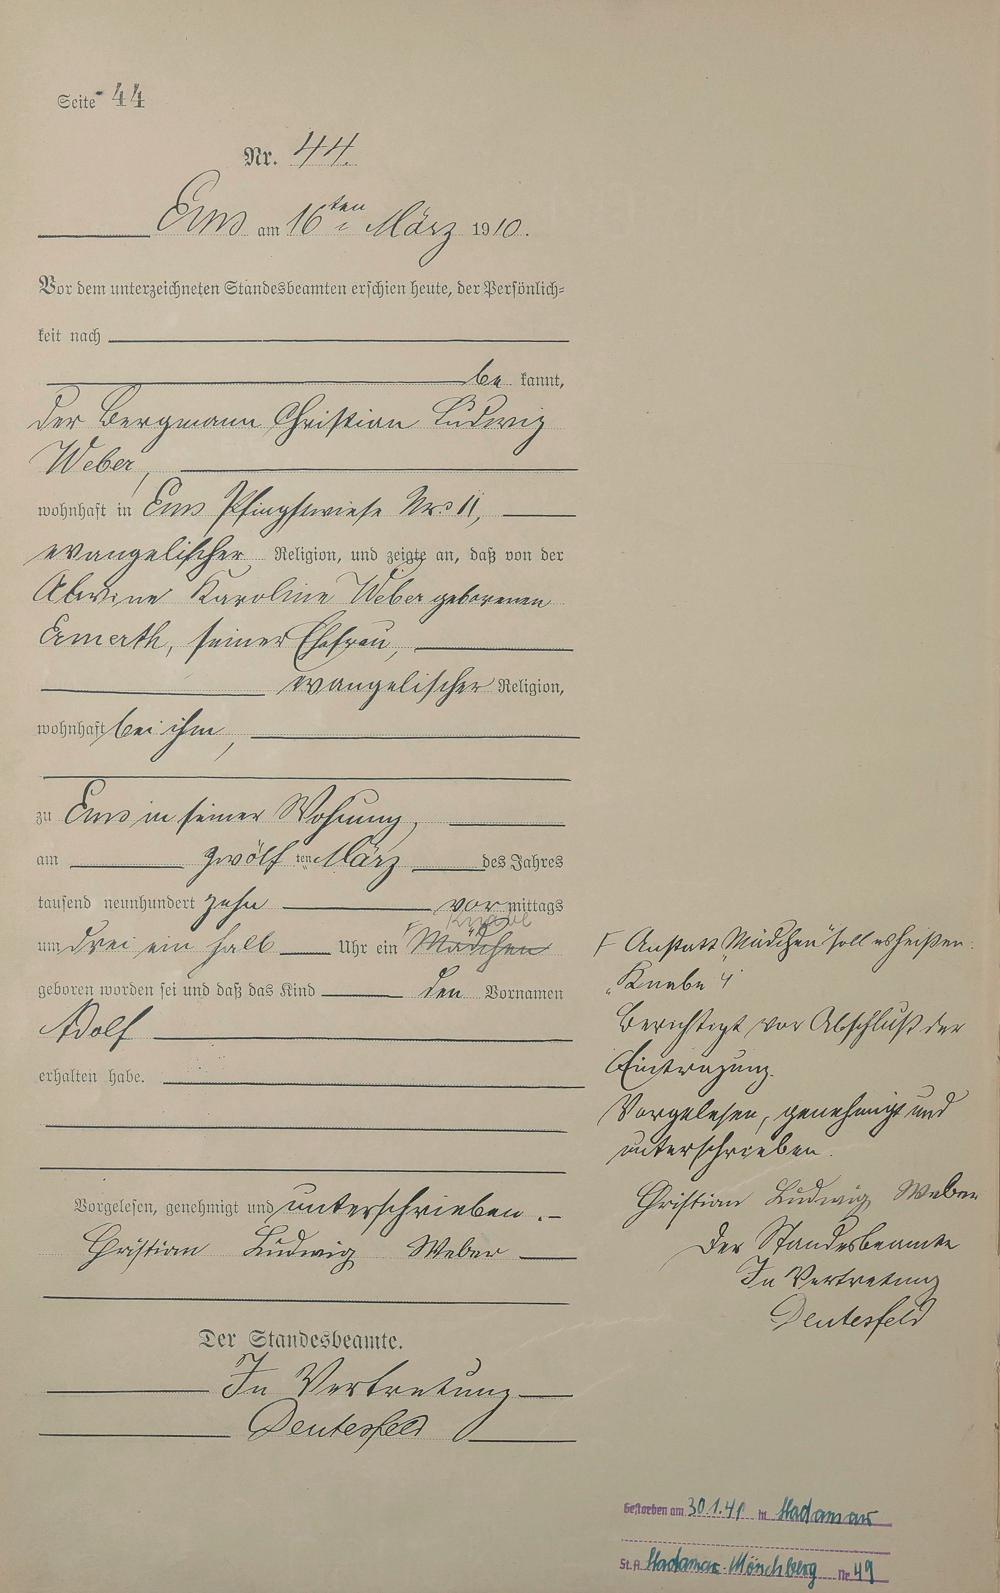 Seite 44
Nr. 44.
Ems am 16ten März 1910.
Vor dem unterzeichneten Standesbeamten erschien heute, der Persönlich-
keit nach
be kannt,
der Bergmann Christian Ludwig
Weber,
wohnhaft in Ems Pfingstwiese Nro 11,
evangelischer Religion, und zeigte an, daß von der
Alwine Karoline Weber geborenen
Ermerth, seiner Ehefrau,
evangelischer Religion,
wohnhaft bei ihm,
zu Ems in seiner Wohnung,
am zwölf ten März des Jahres
tausend neunhundert zehn vor mittags
Knabe
um drei ein halb Uhr ein Mädchen
geboren worden sei und daß das Kind den Vornamen
Adolf
erhalten habe.
Vorgelesen, genehmigt und unterschrieben.-
Christian Ludwig Weber
Der Standesbeamte.
In Vertretung
Deutesfeld
F Anstatt „Mädchen" soll es heißen:
„Knabe"
Berichtigt vor Abschluß der
Eintragung.
Vorgelesen, genehmigt und
unterschrieben.
Christian Ludwig Weber
Der Standesbeamte
In Vertretung
Deutesfeld
Gestorben am 30.1.41 in Hadamar
St.A. Hadamar-Mönchberg Nr. 49